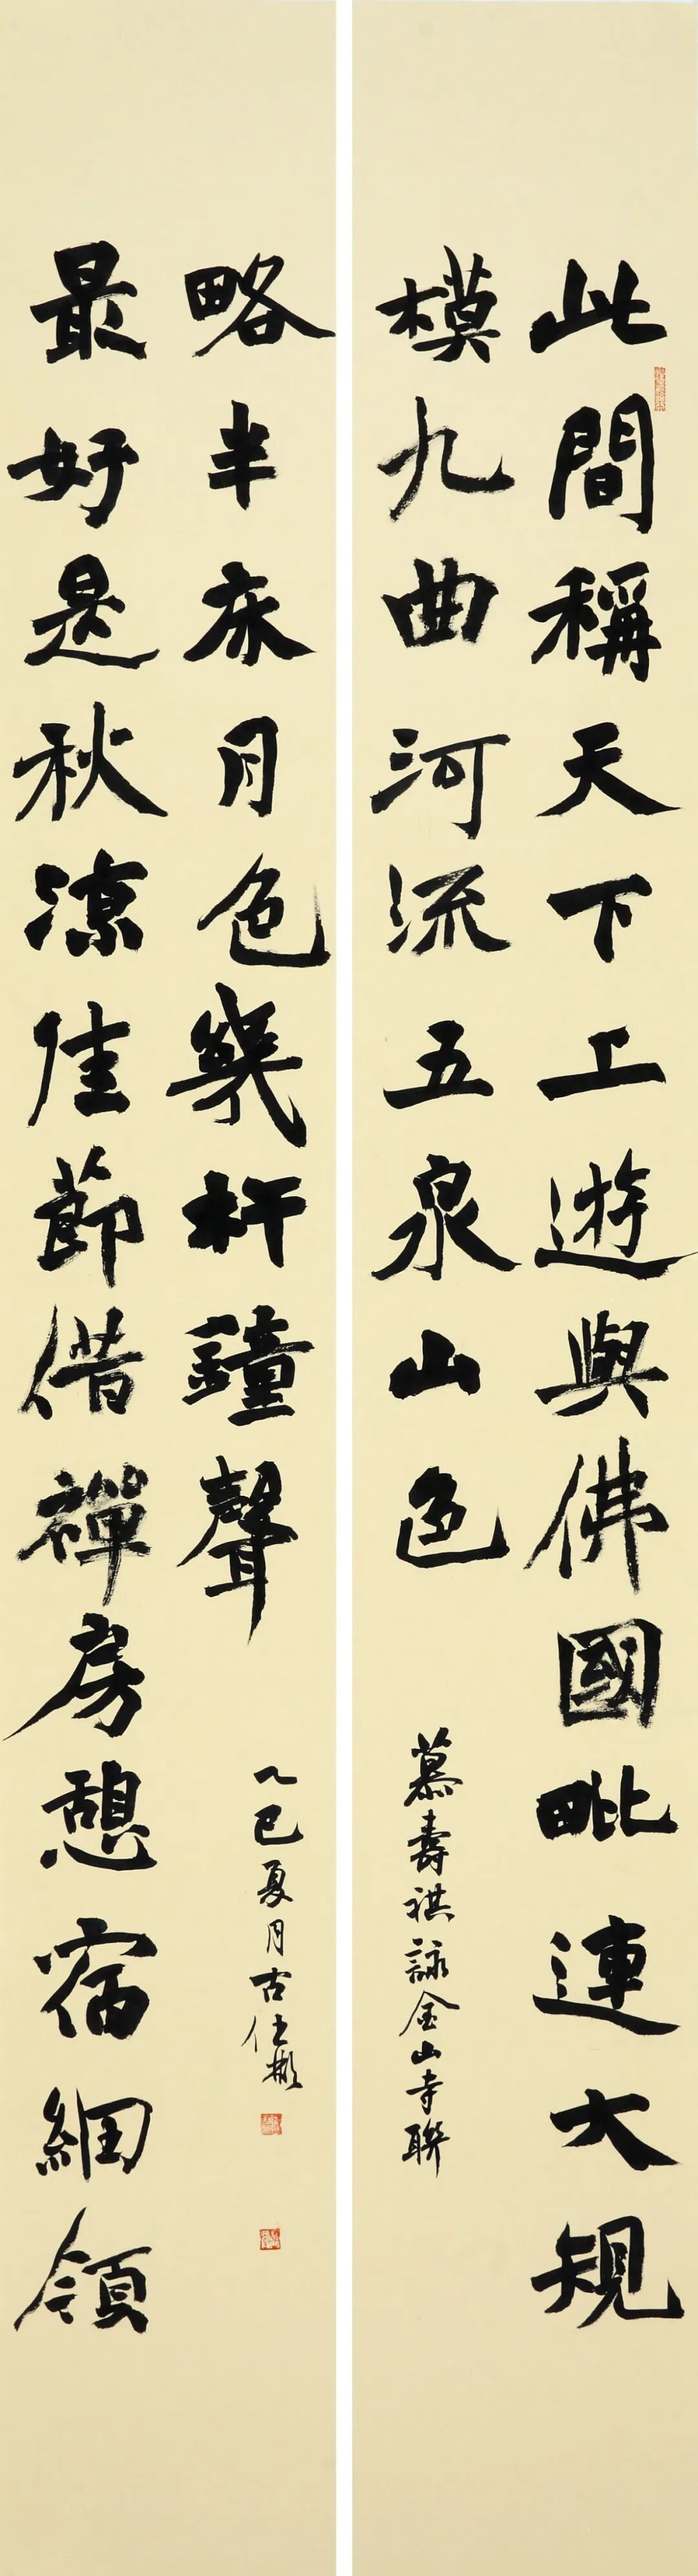 此間稱天下工遊與佛國毗連大規
模九曲河流五泉山色
慕壽祺詠金山寺聯
最好是秋涼佳節借禪房憩宿細領
略半床月色幾杵鐘聲
乙巳夏月古仕彬